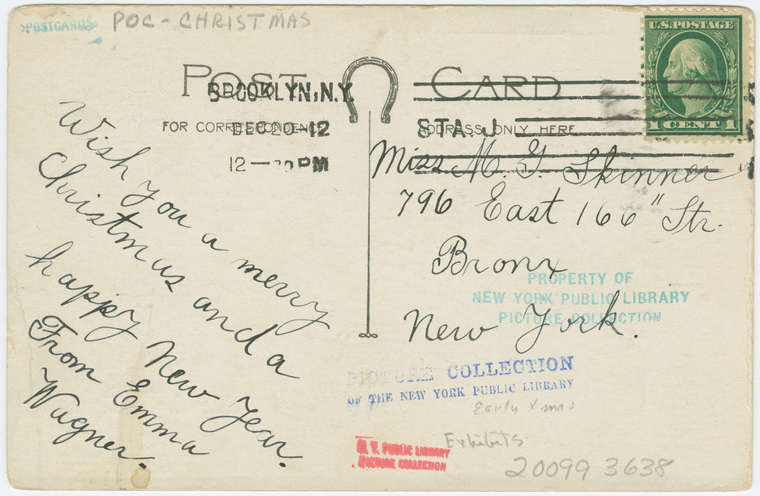 POSTCARDS
POC - CHRISTMAS
U.S. POSTAGE
1 CENT 1
POST CARD
BROOKLYN, N.Y.
DEC 20 12
STA. J
FOR CORRESPONDENCE
ADDRESS ONLY HERE
12— PM
Wish you a merry
Christmas and a
happy New Year.
From Emma
Wagner.
Miss M. G. Skinner
796 East 166" Str.
Bronx
New York.
PROPERTY OF
NEW YORK PUBLIC LIBRARY
PICTURE COLLECTION
PICTURE COLLECTION
OF THE NEW YORK PUBLIC LIBRARY
Early Xmas
Exhibits
N. Y. PUBLIC LIBRARY
PICTURE COLLECTION
20099 3638